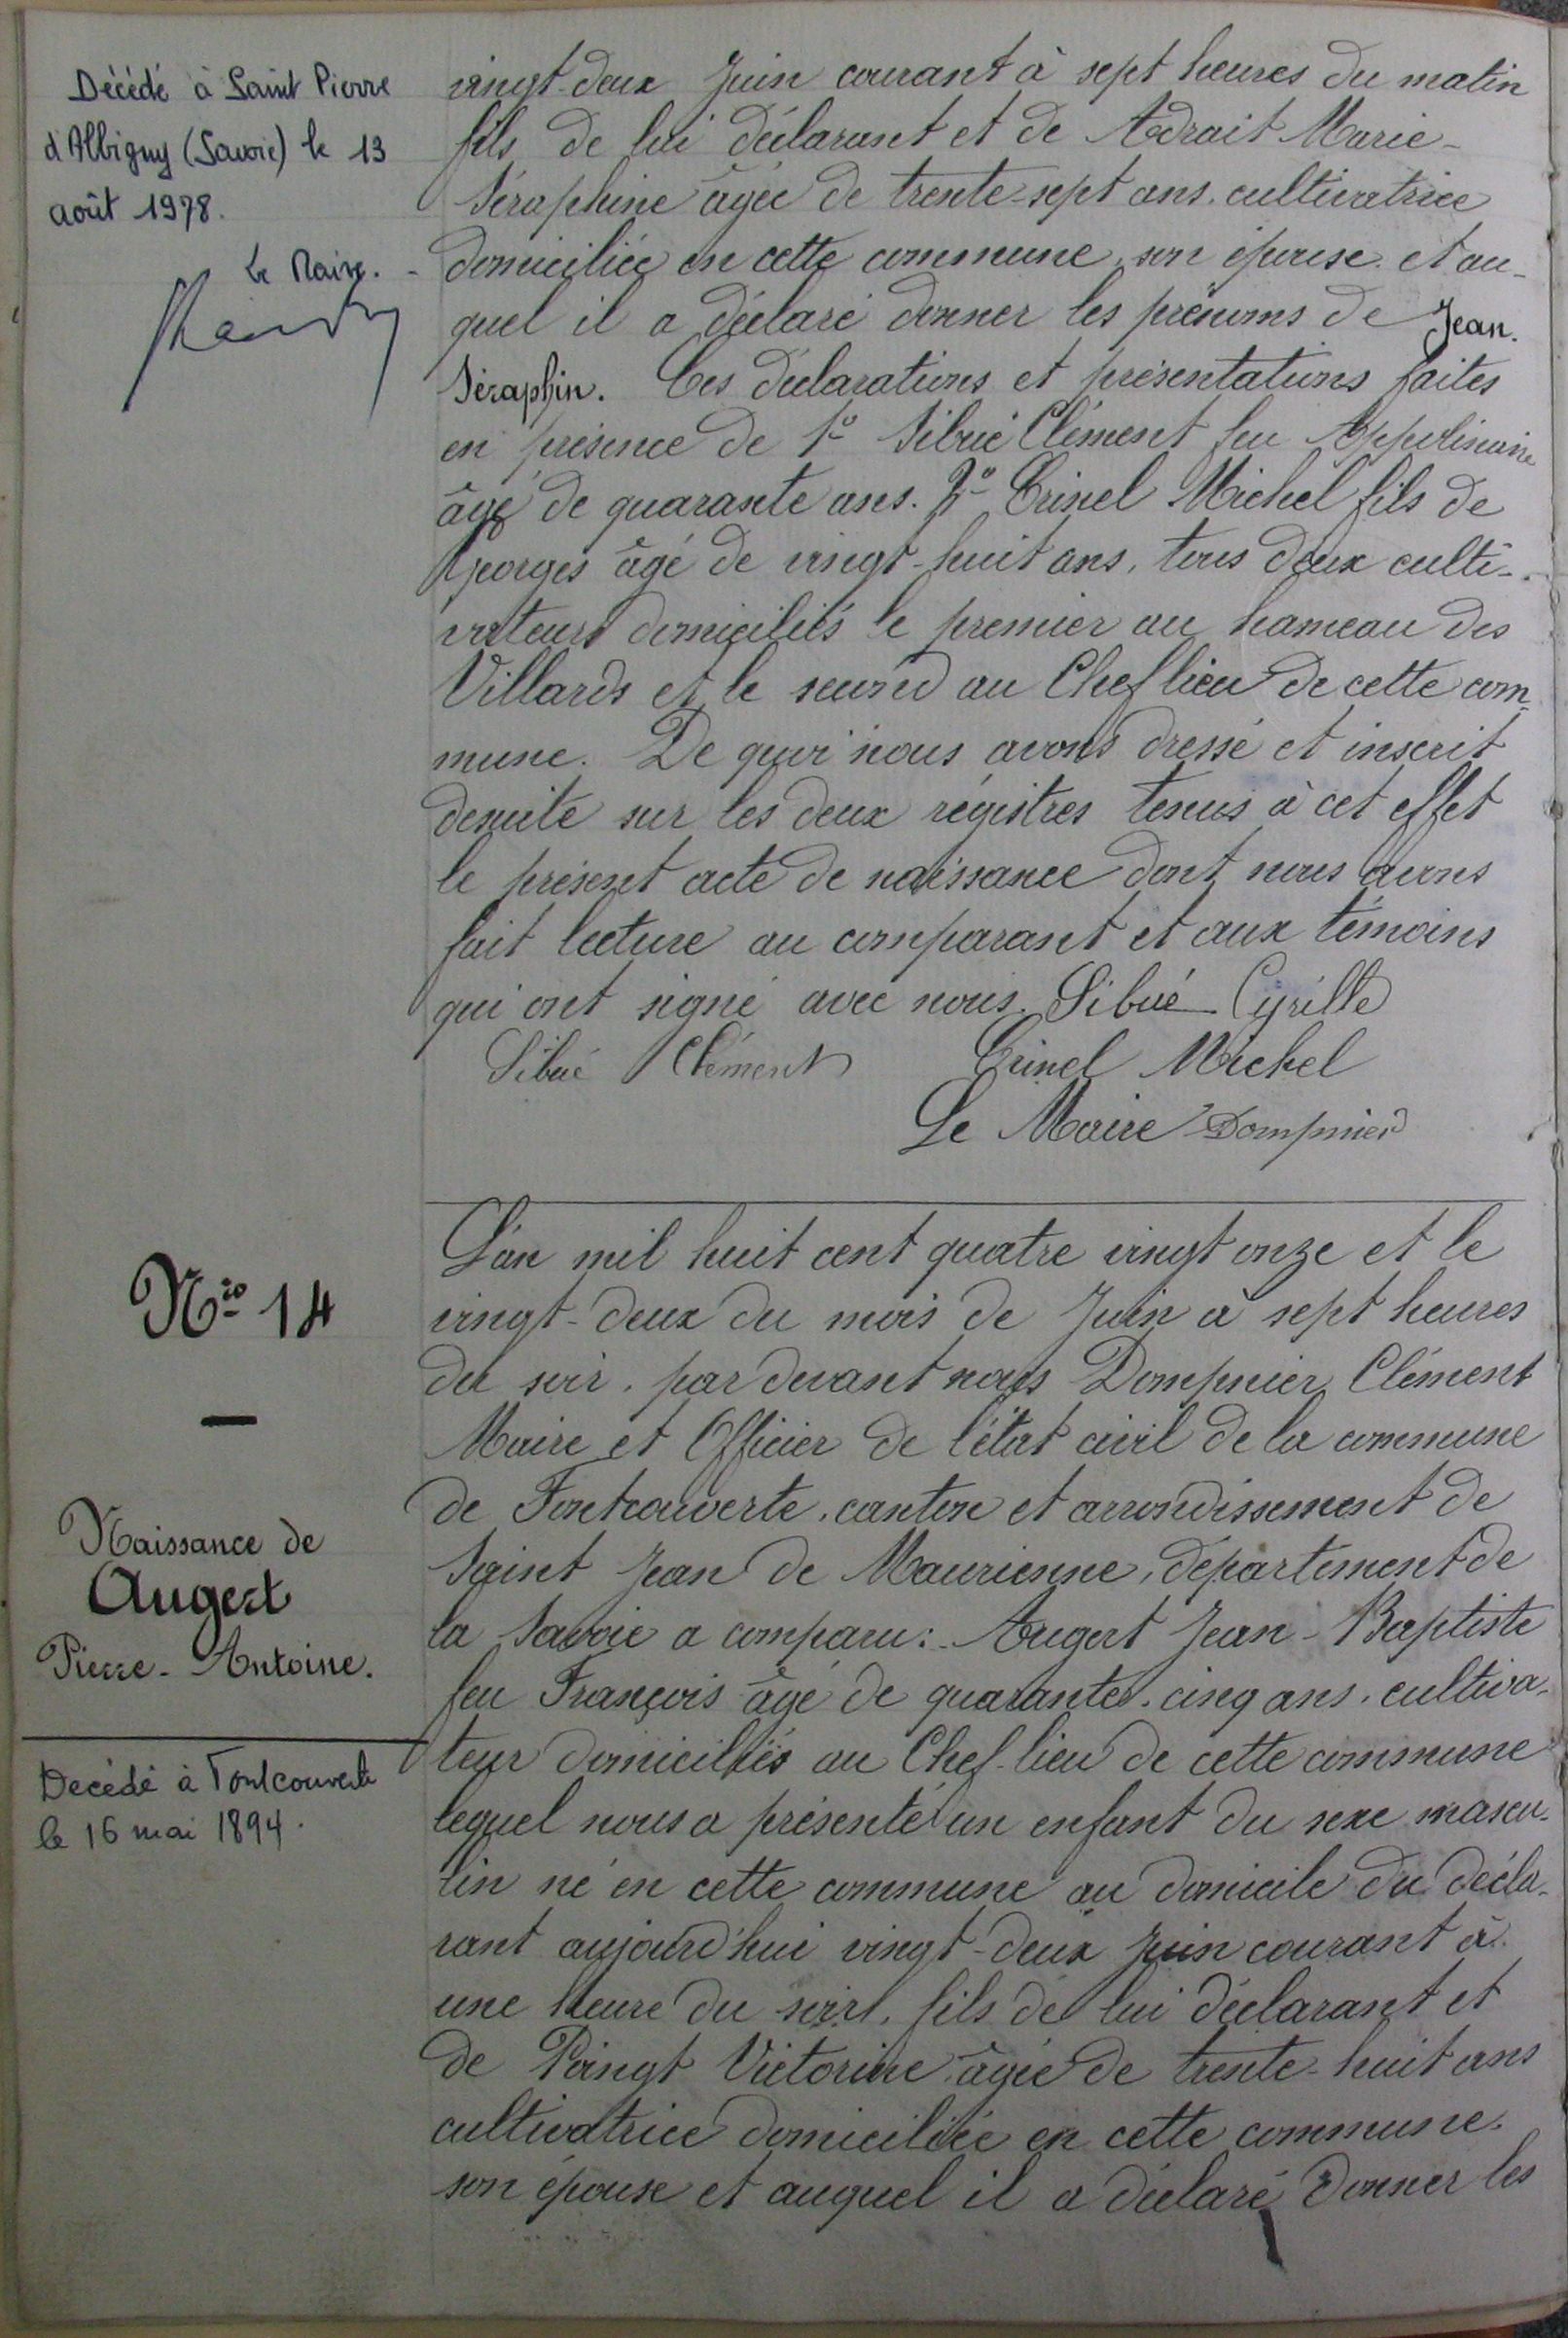 Décédé à Saint Pierre
d'Albigny (Savoie) le 13
août 1978.
Le Maire.
vingt-deux Juin courant à sept heures du matin
fils de lui déclarant et de Adrait Marie-
Séraphine âgée de trente-sept ans. cultivatrice
domiciliée en cette commune, son épouse. et au-
quel il a déclaré donner les prénoms de Jean.
Séraphin. Ces déclarations et présentations faites
en présence de 1º Sibué Clément feu Appolinaire
âgé de quarante ans. 2º Crinel Michel fils de
Georges âgé de vingt-huit ans, tous deux culti-
vateurs domiciliés le premier au hameau des
Villards et le second au Chef lieu de cette com-
mune. De quoi nous avons dressé et inscrit
desuite sur les deux régistres tenus à cet effet
le présent acte de naissance dont nous avons
fait lecture au comparant et aux témoins
qui ont signé avec nous. Sibué Cyrille
Sibué Clément Crinel Michel
Le Maire Dompnier
Nro 14
Naissance de
Augert
Pierre-Antoine.
Decédé à Fontcouverte
le 16 mai 1894.
L'an mil huit cent quatre vingt onze et le
vingt-deux du mois de Juin à sept heures
du soir. par devant nous Dompnier Clément
Maire et Officier de l'état civil de la commune
de Fontcouverte. canton et arrondissement de
Saint Jean de Maurienne, département de
la Savoie a comparu: Augert Jean-Baptiste
feu François âgé de quarante. cinq ans. cultiva-
teur domiciliés au Chef-lieu de cette commune
lequel nous a présenté un enfant du sexe mascu-
lin né en cette commune au domicile du décla-
rant aujourd'hui vingt-deux Juin courant à
une heure du soir. fils de lui déclarant et
de Pringt Victorine âgée de trente-huit ans
cultivatrice domiciliée en cette commune.
son épouse et auquel il a déclaré donner les